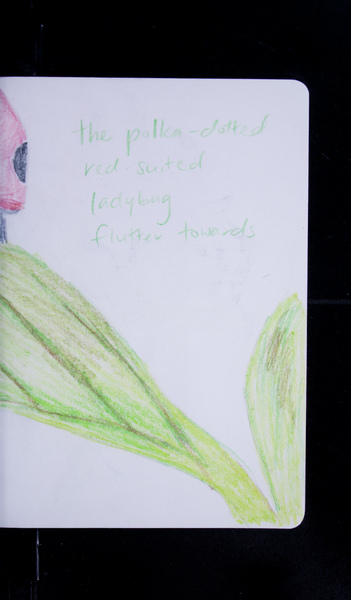 the polka-dotted
red-suited
ladybug
flutter towards